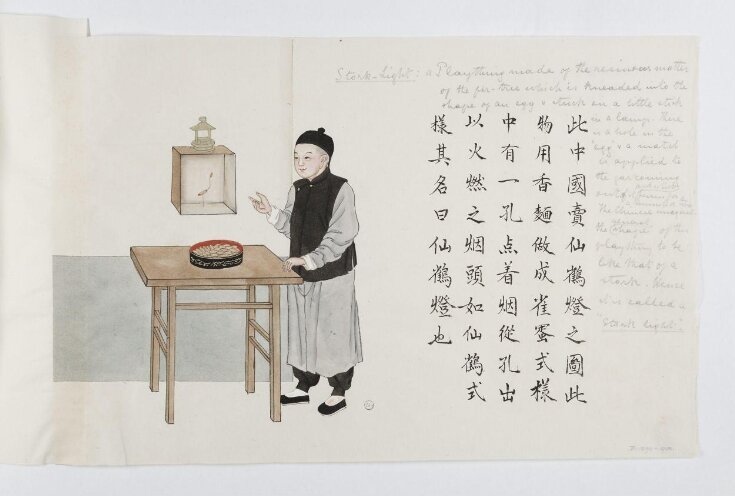 Stork-Light: a Plaything made of the resinous matter
of the fir-tree which is kneaded into the
shape of an egg & stuck on a little stick
in a lamp. There
is a hole in the
egg & a match
is applied to
the
The Chinese
the shape of the
plaything to be
like that of a
stork. hence
it is called a
Stork light.
此中國賣仙鶴燈之圖此
物用香麵做成雀蛋式樣
中有一孔点着烟從孔出
以火燃之烟頭如仙鶴式
樣其名曰仙鶴燈也